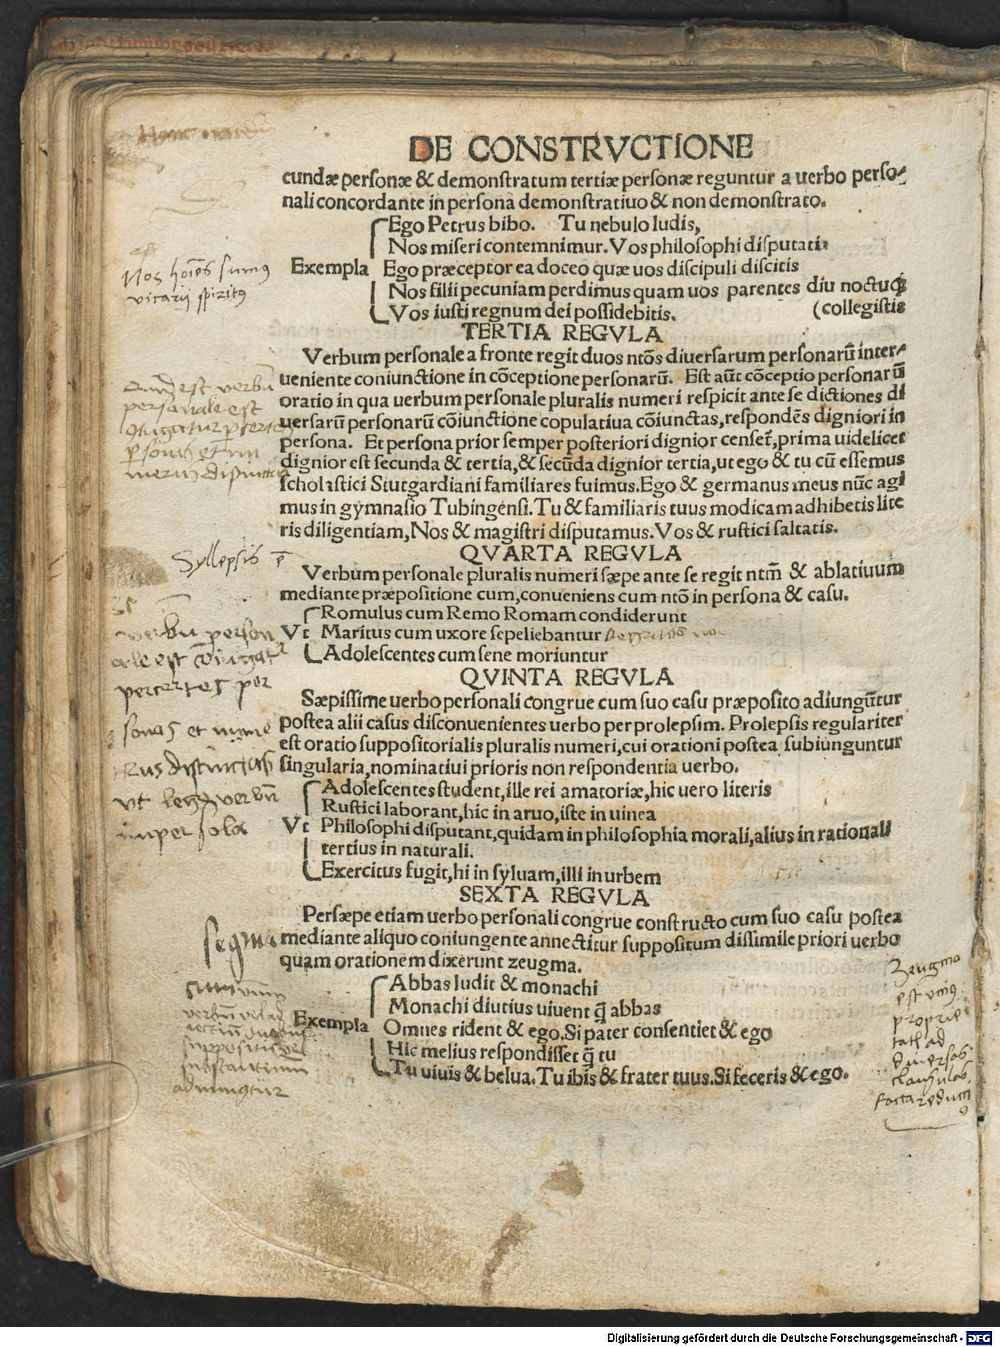 DE CONSTRVCTIONE
cundæ personæ & demonstratum tertiæ personæ reguntur a uerbo perso-
nali concordante in persona demonstratiuo & non demonstrato.
Ego Petrus bibo. Tu nebulo ludis,
Nos miseri contemnimur. Vos philosophi disputatis
Exempla Ego præceptor ea doceo quæ uos discipuli discitis
Nos filii pecuniam perdimus quam uos parentes diu noctuqꝫ
Vos iusti regnum dei possidebitis. (collegistis
TERTIA REGVLA
Verbum personale a fronte regit duos ntōs diuersarum personarū inter-
ueniente coniunctione in cōceptione personarū. Est aūt cōceptio personarū
oratio in qua uerbum personale pluralis numeri respicit ante se dictiones di
uersarū personarū cōiunctione copulatiua cōiunctas, respondēs digniori in
persona. Et persona prior semper posteriori dignior censet̄, prima uidelicet
dignior est secunda & tertia, & secūda dignior tertia, ut ego & tu cū essemus
scholastici Stutgardiani familiares fuimus. Ego & germanus meus nūc agi
mus in gymnasio Tubingensi. Tu & familiaris tuus modicam adhibetis lite
ris diligentiam, Nos & magistri disputamus. Vos & rustici saltatis.
QVARTA REGVLA
Verbum personale pluralis numeri sæpe ante se regit ntm̄ & ablatiuum
mediante præpositione cum, conueniens cum ntō in persona & casu.
Romulus cum Remo Romam condiderunt
Vt Maritus cum uxore sepeliebantur
Adolescentes cum sene moriuntur
QVINTA REGVLA
Sæpissime uerbo personali congrue cum suo casu præposito adiungūtur
postea alii casus disconuenientes uerbo per prolepsim. Prolepsis regulariter
est oratio suppositorialis pluralis numeri, cui orationi postea subiunguntur
singularia, nominatiui prioris non respondentia uerbo.
Adolescentes student, ille rei amatoriæ, hic uero literis
Rustici laborant, hic in aruo, iste in uinea
Vt Philosophi disputant, quidam in philosophia morali, alius in rationali
tertius in naturali.
Exercitus fugit, hi in syluam, illi in urbem
SEXTA REGVLA
Persæpe etiam uerbo personali congrue constructo cum suo casu postea
mediante aliquo coniungente annectitur suppositum dissimile priori uerbo
quam orationem dixerunt zeugma.
Abbas ludit & monachi
Monachi diutius uiuent q̄ abbas
Exempla Omnes rident & ego, Si pater consentiet & ego
Hic melius respondisset q̄ tu
Tu uiuis & belua. Tu ibis & frater tuus. Si feceris & ego.
Nos hoīes sumus
vicarij spiritus
Syllepsis
verbū person
ale est
percertes per
sonas et nume
rus distinctas
ut lego verbū
Zeugma
est unius
proprie
ad
diuersas
clausulas
facta reducti
Digitalisierung gefördert durch die Deutsche Forschungsgemeinschaft - DFG